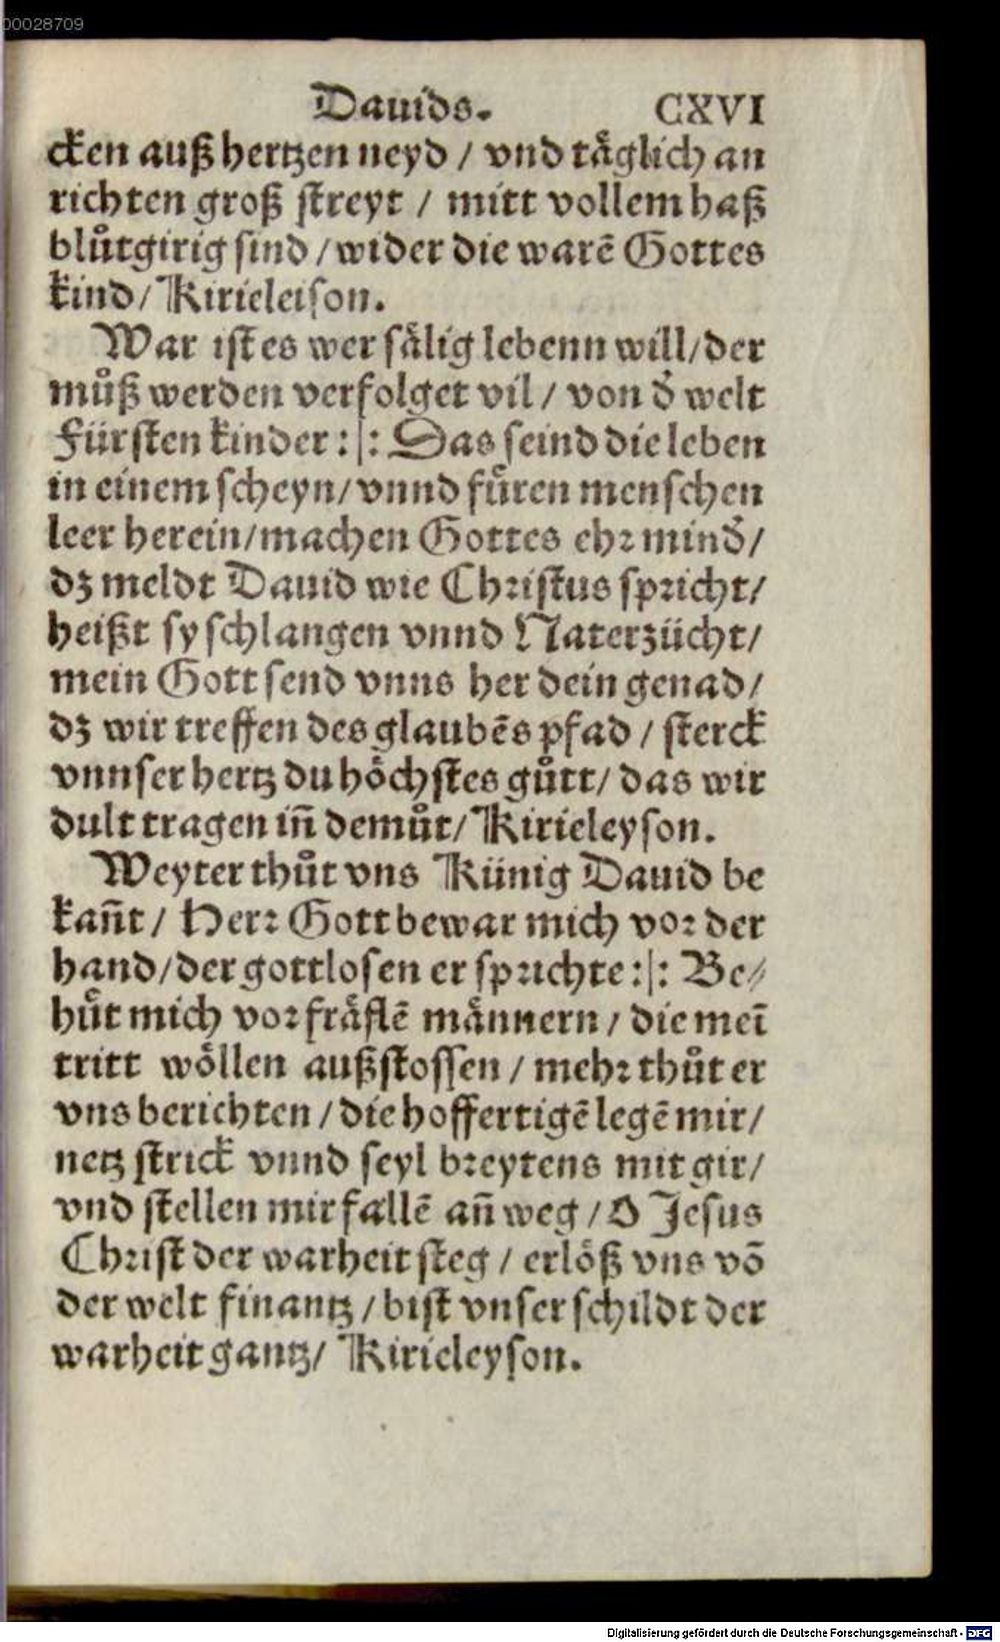 00028709
Dauids. CXVI
cken auß hertzen neyd / vnd täglich an
richten groß streyt / mitt vollem haß
blůtgirig sind / wider die warē Gottes
kind / Kirieleison.
War ist es wer sälig lebenn will / der
můß werden verfolget vil / von d̕ welt
Fürsten kinder :|: Das seind die leben
in einem scheyn / vnnd fůren menschen
leer herein / machen Gottes ehr mind̕ /
dz meldt Dauid wie Christus spricht /
heißt sy schlangen vnnd Naterzücht /
mein Gott send vnns her dein genad /
dz wir treffen des glaubēs pfad / sterck
vnnser hertz du höchstes gůtt / das wir
dult tragen iñ demůt / Kirieleyson.
Weyter thůt vns Künig Dauid be
kañt / Herr Gott bewar mich vor der
hand / der gottlosen er sprichte :|: Be⸗
hůt mich vor fräflē männern / die meī
tritt wöllen außstossen / mehr thůt er
vns berichten / die hoffertigē legē mir /
netz strick vnnd seyl breytens mit gir /
vnd stellen mir fallē añ weg / O Jesus
Christ der warheit steg / erlöß vns vō
der welt finantz / bist vnser schildt der
warheit gantz / Kirieleyson.
Digitalisierung gefördert durch die Deutsche Forschungsgemeinschaft - DFG